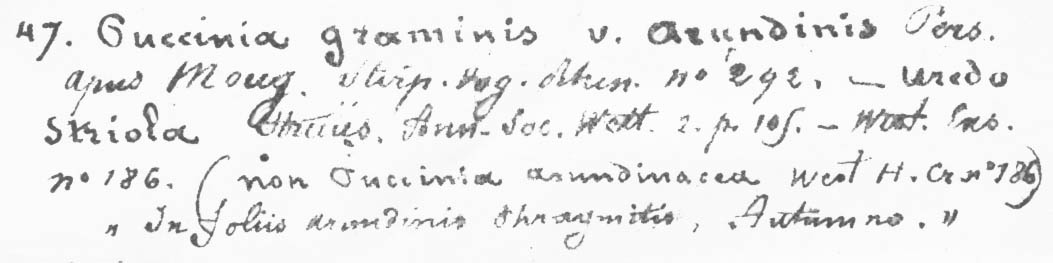 47. Puccinia graminis v. arundinis Pers.
apud Moug. Stirp. Vog. Rhen. no 292. — uredo
striola Strauss. Ann. Soc. Wett. 2. p. 105. — West. Exs.
no 186. (non Puccinia arundinacea West H. Cr no 186)
" In foliis arundinis Phragmitis, Autumno. "